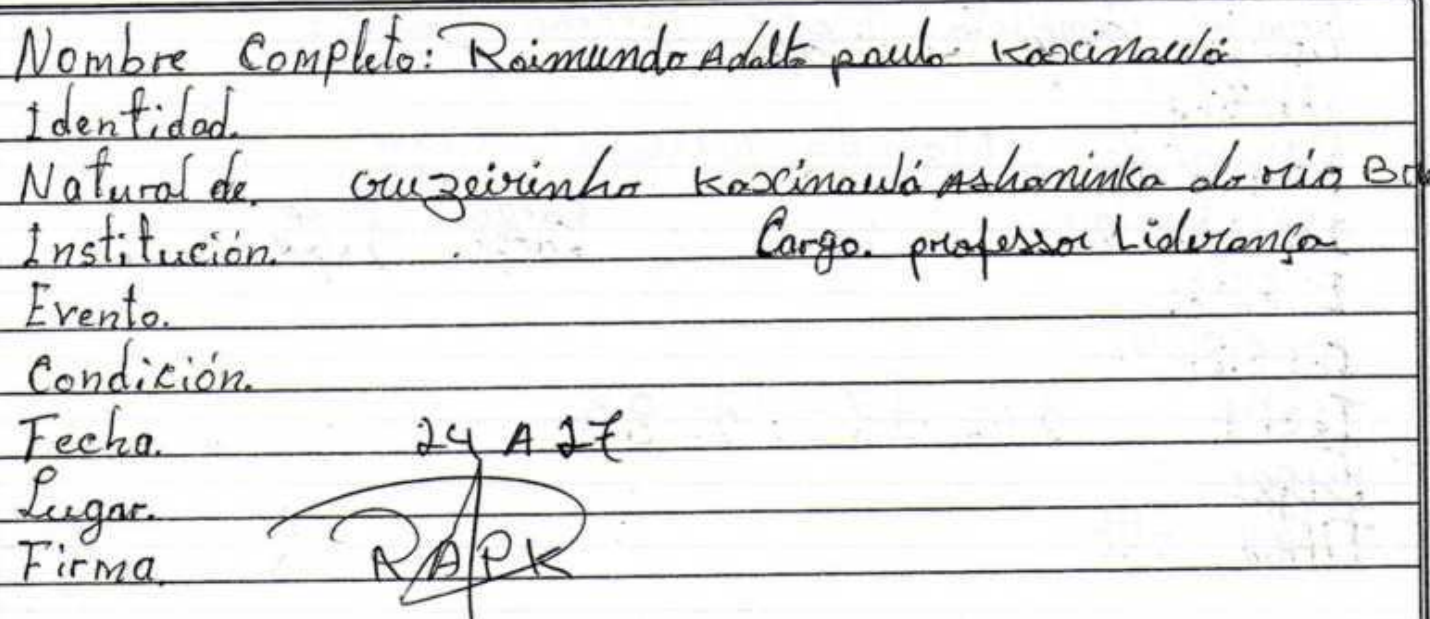 Nombre Completo: Raimundo Adalto paulo Kaxinawá
Identidad.
Natural de. cruzeirinho Kaxinawá Ashaninka do rio
Institución. Cargo. professor Liderança
Evento.
Condición.
Fecha. 24 A 27
Lugar.
Firma. RAPK